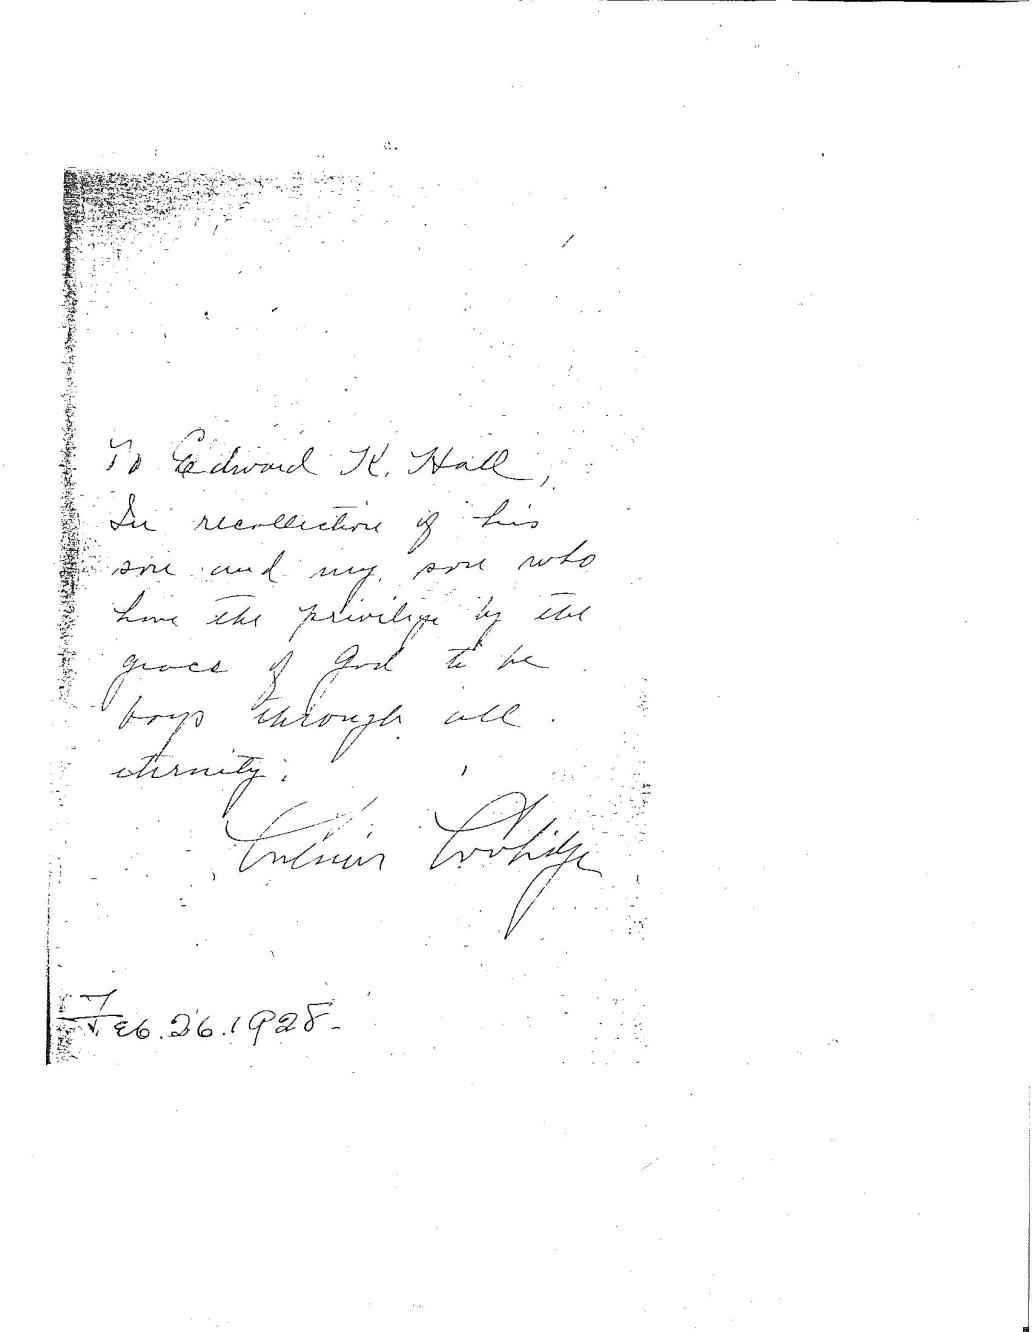 To Edward K. Hall,
In recollection of his
son and my son who
have the privilege by the
grace of God to be
boys through all
eternity.
Calvin Coolidge
Feb. 26. 1928-